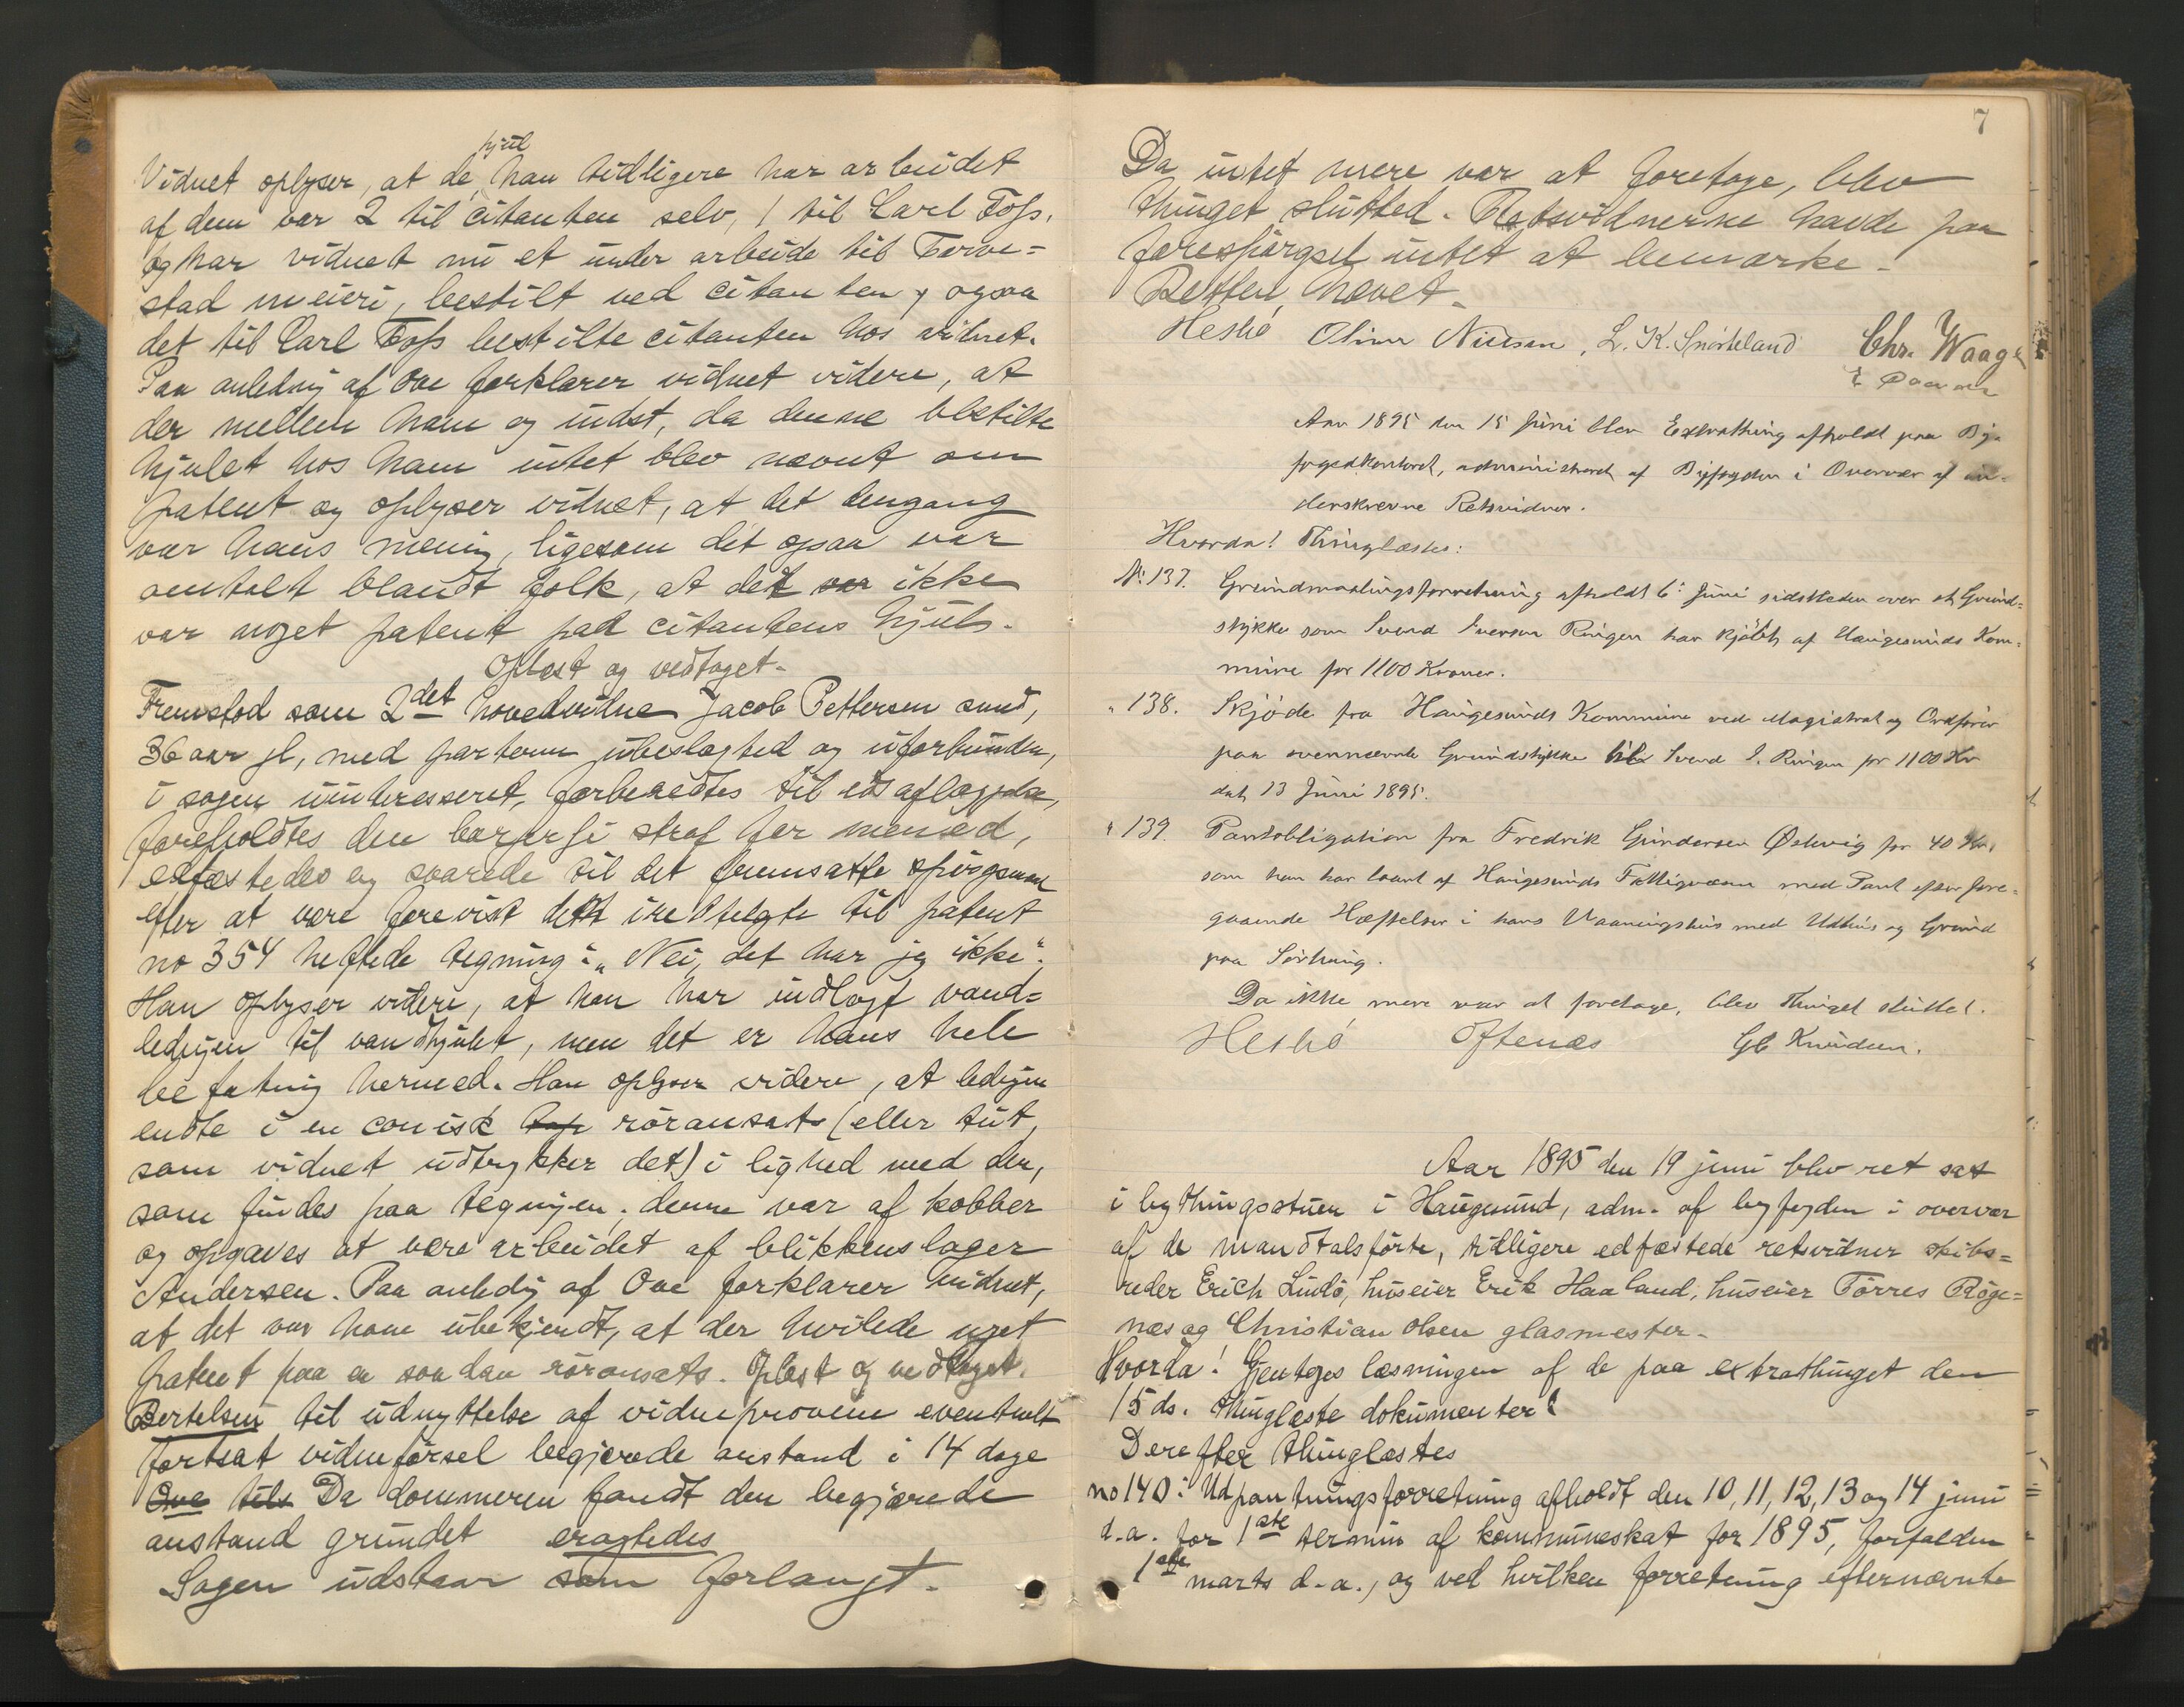 hjul
Vidnet oplyser, at de han tidligere har arbeidet
af dem var 2 til citanten selv, 1 til Carl Foss,
og har vidnet nu et under arbeide til Torve-
stad meieri, bestilt ved citanten, ogsaa
det til Carl Foss bestilte citanten hos vidnet.
Paa anledng af Ove forklarer vidnet videre, at
der mellem ham og indst, da denne bestilte
hjulet hos ham intet blev nævnt om
patent og oplyser vidnet, at det dengang
var hans mening, ligesom det ogsaa var
omtalt blandt folk, at det var ikke
var noget patent paa citantens hjul.
Oplæst og vedtaget.
Fremstod som 2det hovedvidne Jacob Pettersen sund,
36 aar gl, med parterne ubeslægted og uforbunden,
i sagen uinteresseret, forberedtes til edsaflæggelse,
foreholdtes den borgerlige straf for mened,
edfæstedes og svarede til det fremsatte spørgsmaal
efter at være forevist dett irettelagte til patent
no 354 heftede tegning: "Nei, det har jeg ikke".
Han oplyser videre, at han har indlagt vand-
ledngen til vandhjulet, men det er hans hele
befatning hermed. Han oplyser videre, at ledngen
endte i en conisk røransats (eller tut,
som vidnet udtrykker det) i lighed med den,
som findes paa tegningen; denne var af kobber
og opgaves at være arbeidet af blikkenslager
Andersen. Paa anledng af Ove forklarer vidnet,
at det var ham ubekjendt, at der hvilede noget
patent paa en saadan røransats. Oplæst og vedtaget.
Bertelsen til udnyttelse af vidneprovene eventuelt
fortsat vidneførsel begjærede anstand i 14 dage
Ove tils Da dommeren fandt den begjærede
anstand grundet eragtedes
Sagen udstaar som forlangt.
7
Da intet mere var at foretage, blev
thinget slutted. Retsvidnerne havde paa
forespørgsel intet at bemærke.
Retten hævet.
Heshö Oliver Nielsen, L. K. Snørteland Chr. Waage
Aar 1895 den 15 Juni blev Extrathing afholdt paa By-
fogedkontoret, administreret af Byfogden i Overvær af un-
derskrevne Retsvidner.
Hvorda! Thinglæstes:
No 137. Grundmaalingsforretning afholdt 6te Juni sidstleden over et Grund-
stykke som Svend Iversen Ringen har kjøbt af Haugesunds Kom-
mune for 1100 Kroner.
" 138. Skjøde fra Haugesunds Kommune ved Magistrat og Ordfører
paa ovennævnte Grundstykke til Svend I. Ringen for 1100 Kr
dat. 13 Juni 1895.
" 139. Pantobligation fra Fredrik Gundersen Østevig for 40 Kr,
som han har laant af Haugesunds Fattigvæsen med Pant efter fore-
gaaende Hæftelser i hans Vaaningshus med Udhus og Grund
paa Sørhaug.
Da ikke mere var at foretage, blev Thinget sluttet.
Heshö Oftenæs Gb Knudsen.
Aar 1895 den 19 juni blev ret sat
i bythingsstuen i Haugesund, adm. af byfogden i overvær
af de mandtalsførte, tidligere edfæstede retsvidner skibs-
reder Erich Lindø, huseier Erik Haaland, huseier Törres Røge-
næs og Christian Olsen glasmester.
Hvorda! Gjentoges læsningen af de paa extrathinget den
15 ds. thinglæste dokumenter!
Derefter thinglæstes
no 140: Udpantningsforretning afholdt den 10, 11, 12, 13 og 14 juni
d.a. for 1ste termin af kommuneskat for 1895, forfalden
1ste marts d.a., og ved hvilken forretning efternævnte